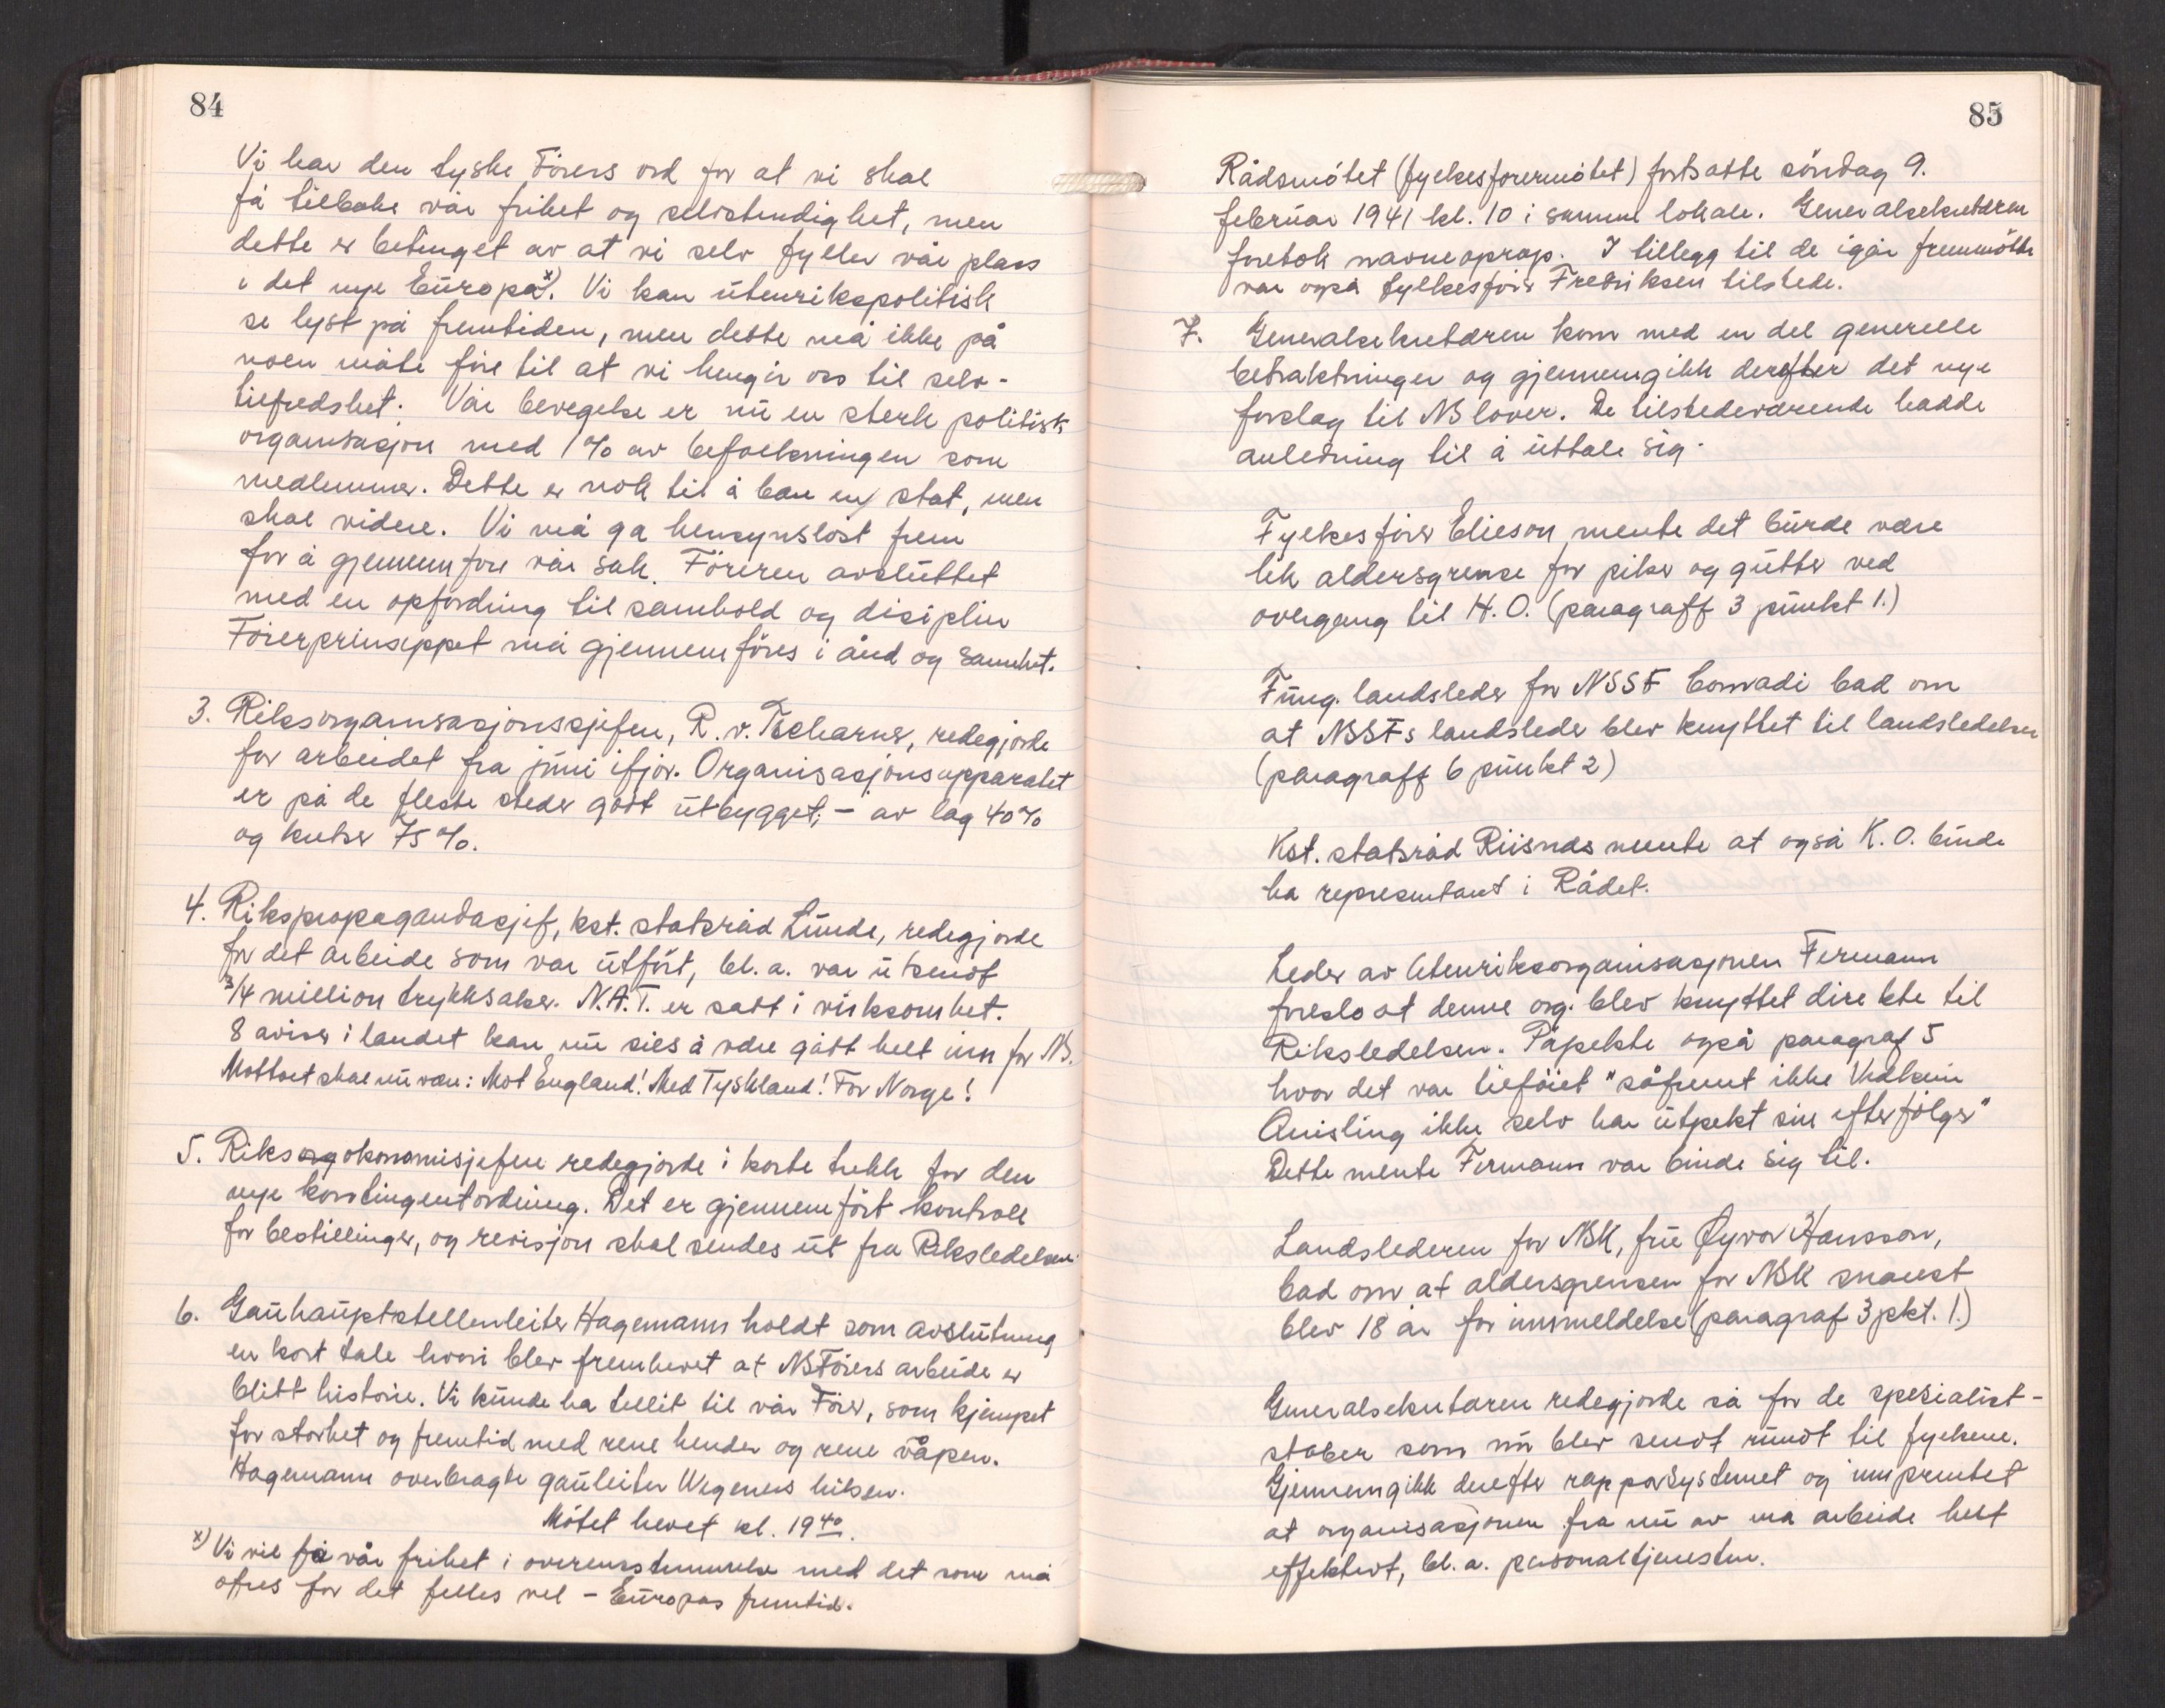 84
Vi har den tyske Förers ord for at vi skal
få tilbake vår frihet og selvstendighet, men
dette er betinget av at vi selv fyller vår plass
i det nye Europa x). Vi kan utenrikspolitisk
se lyst på fremtiden, men dette må ikke på
noen måte före til at vi hengir oss til selv-
tilfredshet. Vår bevegelse er nu en sterk politisk
organisasjon med 1% av befolkningen som
medlemmer. Dette er nok til å bære en stat, men
skal videre. Vi må gå hensynslöst frem
for å gjennemföre vår sak. Föreren avsluttet
med en opfordring til samhold og disiplin
Förerprinsippet må gjennemföres i ånd og sannhet.
3. Riksorganisasjonssjefen, R. v. Tscharner, redegjorde
for arbeidet fra juni ifjor. Organisasjonsapparatet
er på de fleste steder godt utbygget; - av lag 40%
og kretser 75%.
4. Rikspropagandasjef, kst. statsråd Lunde, redegjorde
for det arbeide som var utfört, bl. a. var utsendt
3/4 million trykksaker. N.A.T. er satt i virksomhet.
8 aviser i landet kan nu sies å være gått helt inn for NS.
Mottoet skal nu være: Mot England! Med Tyskland! For Norge!
5. Riksorgokonomisjefen redegjorde i korte trekk for den
nye kontingentordning. Det er gjennemfört kontroll
for bestillinger, og revisjon skal sendes ut fra Riksledelsen.
6. Gauhauptstellenleiter Hagemann holdt som avslutning
en kort tale hvori blev fremhevet at NSFörers arbeide er
blitt historie. Vi kunde ha tillit til vår Förer, som kjempet
for storhet og fremtid med rene hender og rene våpen.
Hagemann overbragte gauleiter Wegeners hilsen.
Mötet hevet kl. 19 40.
x) Vi vil få vår frihet i overensstemmelse med det som må
ofres for det felles vel - Europas fremtid.
85
Rådsmötet (fylkesförermötet) fortsatte söndag 9.
februar 1941 kl. 10 i samme lokale. Generalsekretæren
foretok navneoprop. I tillegg til de igår fremmötte
var også fylkesförer Fredriksen tilstede.
7. Generalsekretæren kom med en del generelle
betraktninger og gjennemgikk derefter det nye
forslag til NS lover. De tilstedeværende hadde
anledning til å uttale sig.
Fylkesförer Elieson mente det burde være
lik aldersgrense for piker og gutter ved
overgang til H. O. (paragraff 3 punkt 1.)
Fung. landsleder for NSSF Conradi bad om
at NSSFs landsleder blev knyttet til landsledelsen
(paragraff 6 punkt 2)
Kst. statsråd Riisnæs mente at også K. O. burde
ha representant i Rådet.
Leder av Utenriksorganisasjonen Fermann
foreslo at denne org. blev knyttet direkte til
Riksledelsen. Påpekte også paragraf 5
hvor det var tilföiet "såfremt ikke Vidkun
Quisling ikke selv har utpekt sin efterfölger"
Dette mente Fermann var binde sig til.
Landslederen for NSK, fru Øyvor Hansson,
bad om at aldersgrensen for NSK snarest
blev 18 år for innmeldelse (paragraf 3 pkt. 1.)
Generalsekretæren redegjorde så for de spesialist-
staber som nu blev sendt rundt til fylkene.
Gjennemgikk derefter rapportsystemet og innprentet
at organisasjonen fra nu av må arbeide helt
effektivt, bl. a. personaltjenesten.